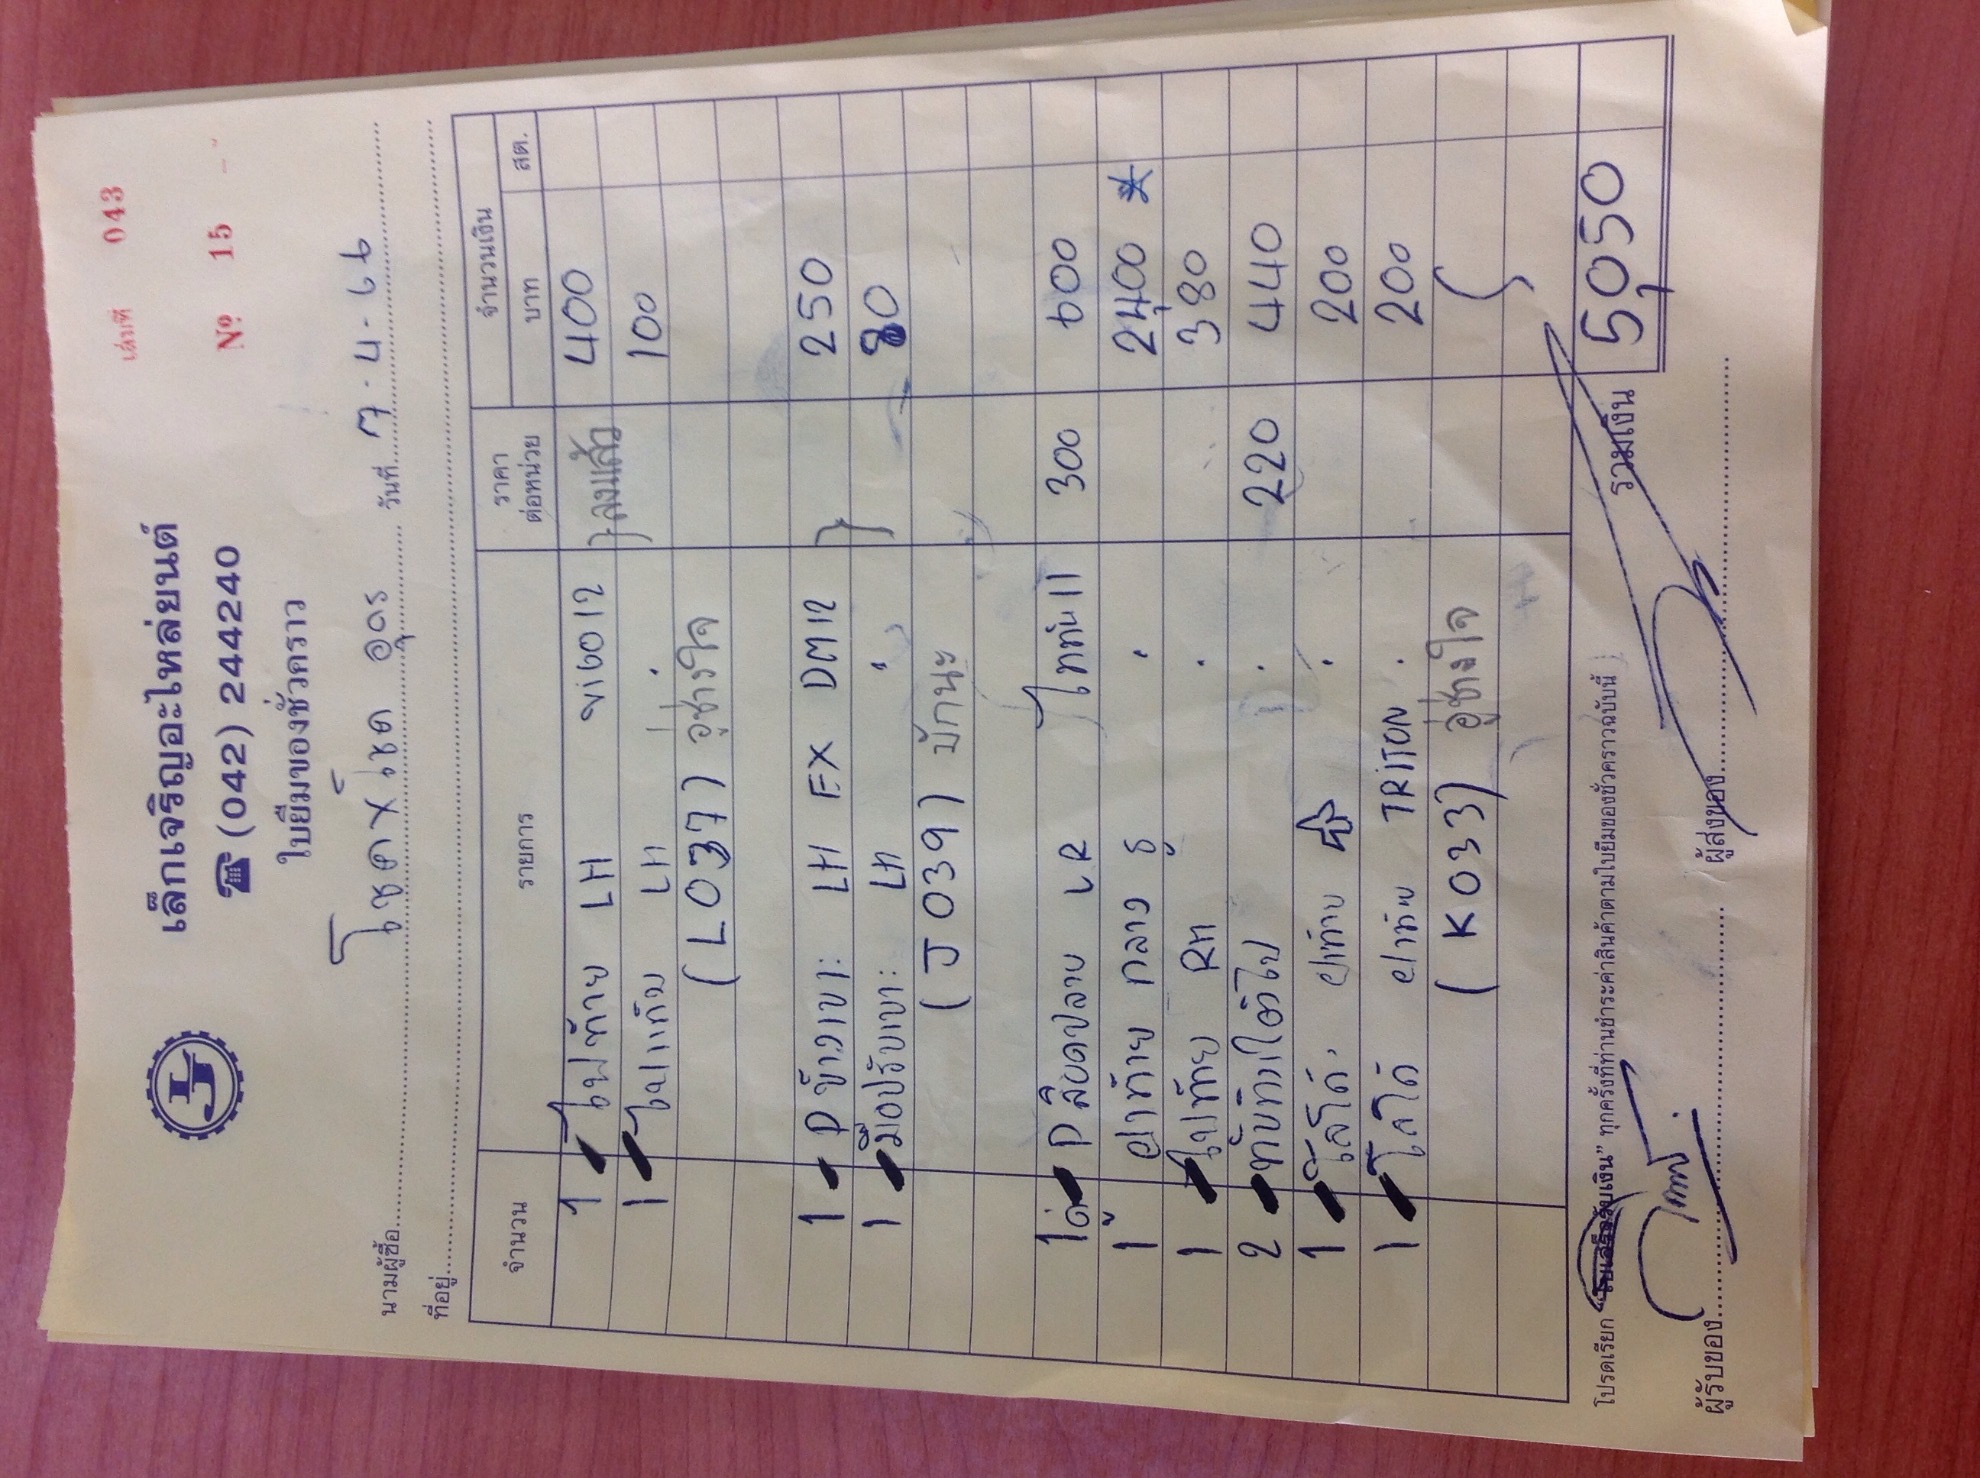 เล่มที่ 043
เล็กเจริญอะไหล่ยนต์
☎ (042) 244240
№ 15
ใบยืมของชั่วคราว
นามผู้ซื้อ โชคชัย อุดร วันที่ 7-4-66
ที่อยู่
จำนวน รายการ ราคาต่อหน่วย จำนวนเงิน
บาท สต.
1 ไฟท้าย LH vigo 12 ลงแล้ว 400
1 ไฟแก้ม LH " 100
(L037) อู่ช่างใจ
1 P ข้างเบาะ LH EX DM12 250
1 มือปรับเบาะ LH " 80
(J039) บักนะ
1 คู่ P LR ไททัน 11 300 600
1 ฝาท้าย กลาง " 2400 *
1 ไฟท้าย RH " 380
2 ทับทิมใต้ไฟ " 220 440
1 โลโก้ ฝาท้าย " 200
1 โลโก้ ฝาท้าย TRITON " 200
(K033) อู่ช่างใจ
โปรดเรียก "ใบเสร็จรับเงิน" ทุกครั้งที่ท่านชำระค่าสินค้าตามใบยืมของชั่วคราวฉบับนี้
รวมเงิน 5,050
ผู้รับของ ผู้ส่งของ